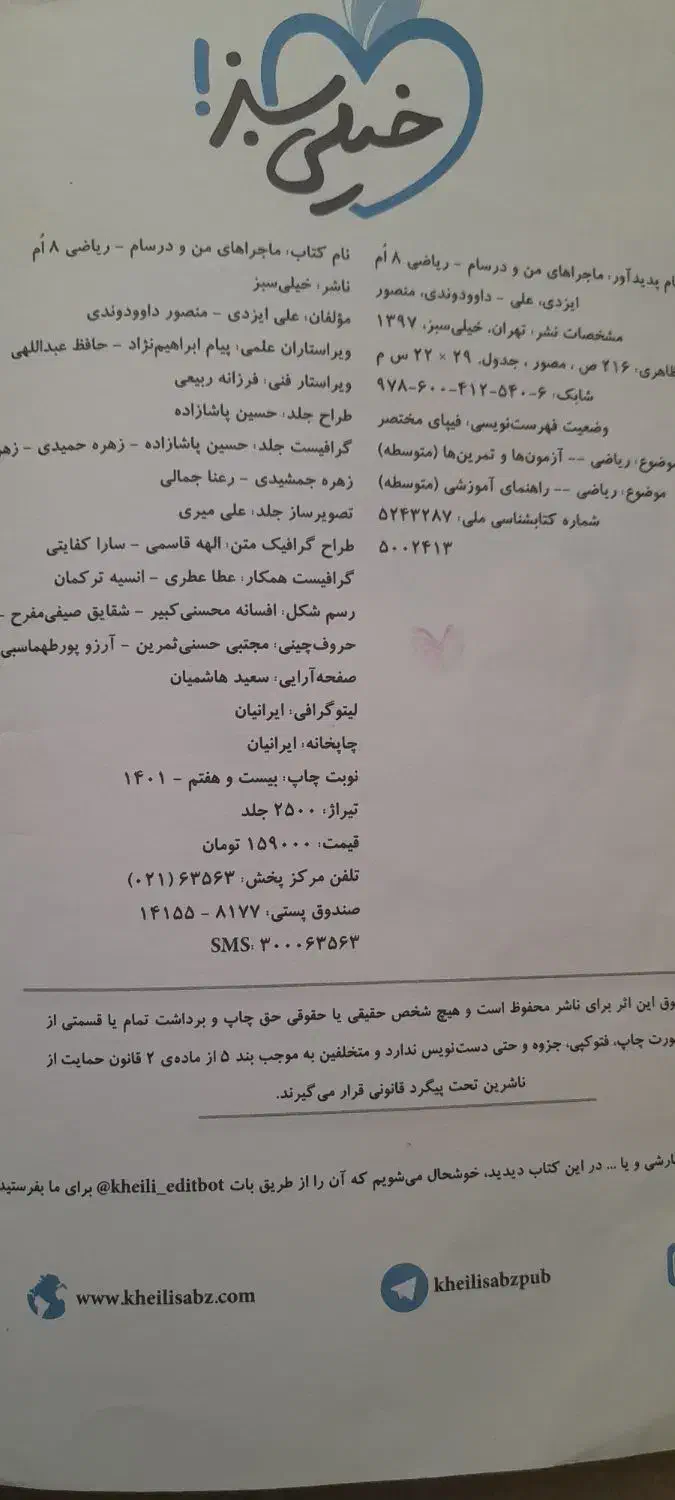 خیلی سبز!
پدیدآور: ماجراهای من و درسام - ریاضی ۸ اُم
ایزدی، علی - داوودوندی، منصور
مشخصات نشر: تهران، خیلی‌سبز، ۱۳۹۷
۲۱۶ ص ، مصور ، جدول. ۲۹ × ۲۲ س م
شابک: ۶-۵۴۰-۴۱۲-۶۰۰-۹۷۸
وضعیت فهرست‌نویسی: فیپای مختصر
موضوع: ریاضی -- آزمون‌ها و تمرین‌ها (متوسطه)
موضوع: ریاضی -- راهنمای آموزشی (متوسطه)
شماره کتابشناسی ملی: ۵۲۴۳۲۸۷
۵۰۰۲۴۱۳
نام کتاب: ماجراهای من و درسام - ریاضی ۸ اُم
ناشر: خیلی‌سبز
مؤلفان: علی ایزدی - منصور داوودوندی
ویراستاران علمی: پیام ابراهیم‌نژاد - حافظ عبداللهی
ویراستار فنی: فرزانه ربیعی
طراح جلد: حسین پاشازاده
گرافیست جلد: حسین پاشازاده - زهره حمیدی -
زهره جمشیدی - رعنا جمالی
تصویرساز جلد: علی میری
طراح گرافیک متن: الهه قاسمی - سارا کفایتی
گرافیست همکار: عطا عطری - انسیه ترکمان
رسم شکل: افسانه محسنی‌کبیر - شقایق صیفی‌مفرح -
حروف‌چینی: مجتبی حسنی‌ثمرین - آرزو پورطهماسبی
صفحه‌آرایی: سعید هاشمیان
لیتوگرافی: ایرانیان
چاپخانه: ایرانیان
نوبت چاپ: بیست و هفتم - ۱۴۰۱
تیراژ: ۲۵۰۰ جلد
قیمت: ۱۵۹۰۰۰ تومان
تلفن مرکز پخش: ۶۳۵۶۳ (۰۲۱)
صندوق پستی: ۸۱۷۷ - ۱۴۱۵۵
SMS: ۳۰۰۰۶۳۵۶۳
این اثر برای ناشر محفوظ است و هیچ شخص حقیقی یا حقوقی حق چاپ و برداشت تمام یا قسمتی از
چاپ، فتوکپی، جزوه و حتی دست‌نویس ندارد و متخلفین به موجب بند ۵ از ماده‌ی ۲ قانون حمایت از
ناشرین تحت پیگرد قانونی قرار می‌گیرند.
و یا ... در این کتاب دیدید، خوشحال می‌شویم که آن را از طریق بات @kheili_editbot برای ما بفرستید
kheilisabzpub
www.kheilisabz.com